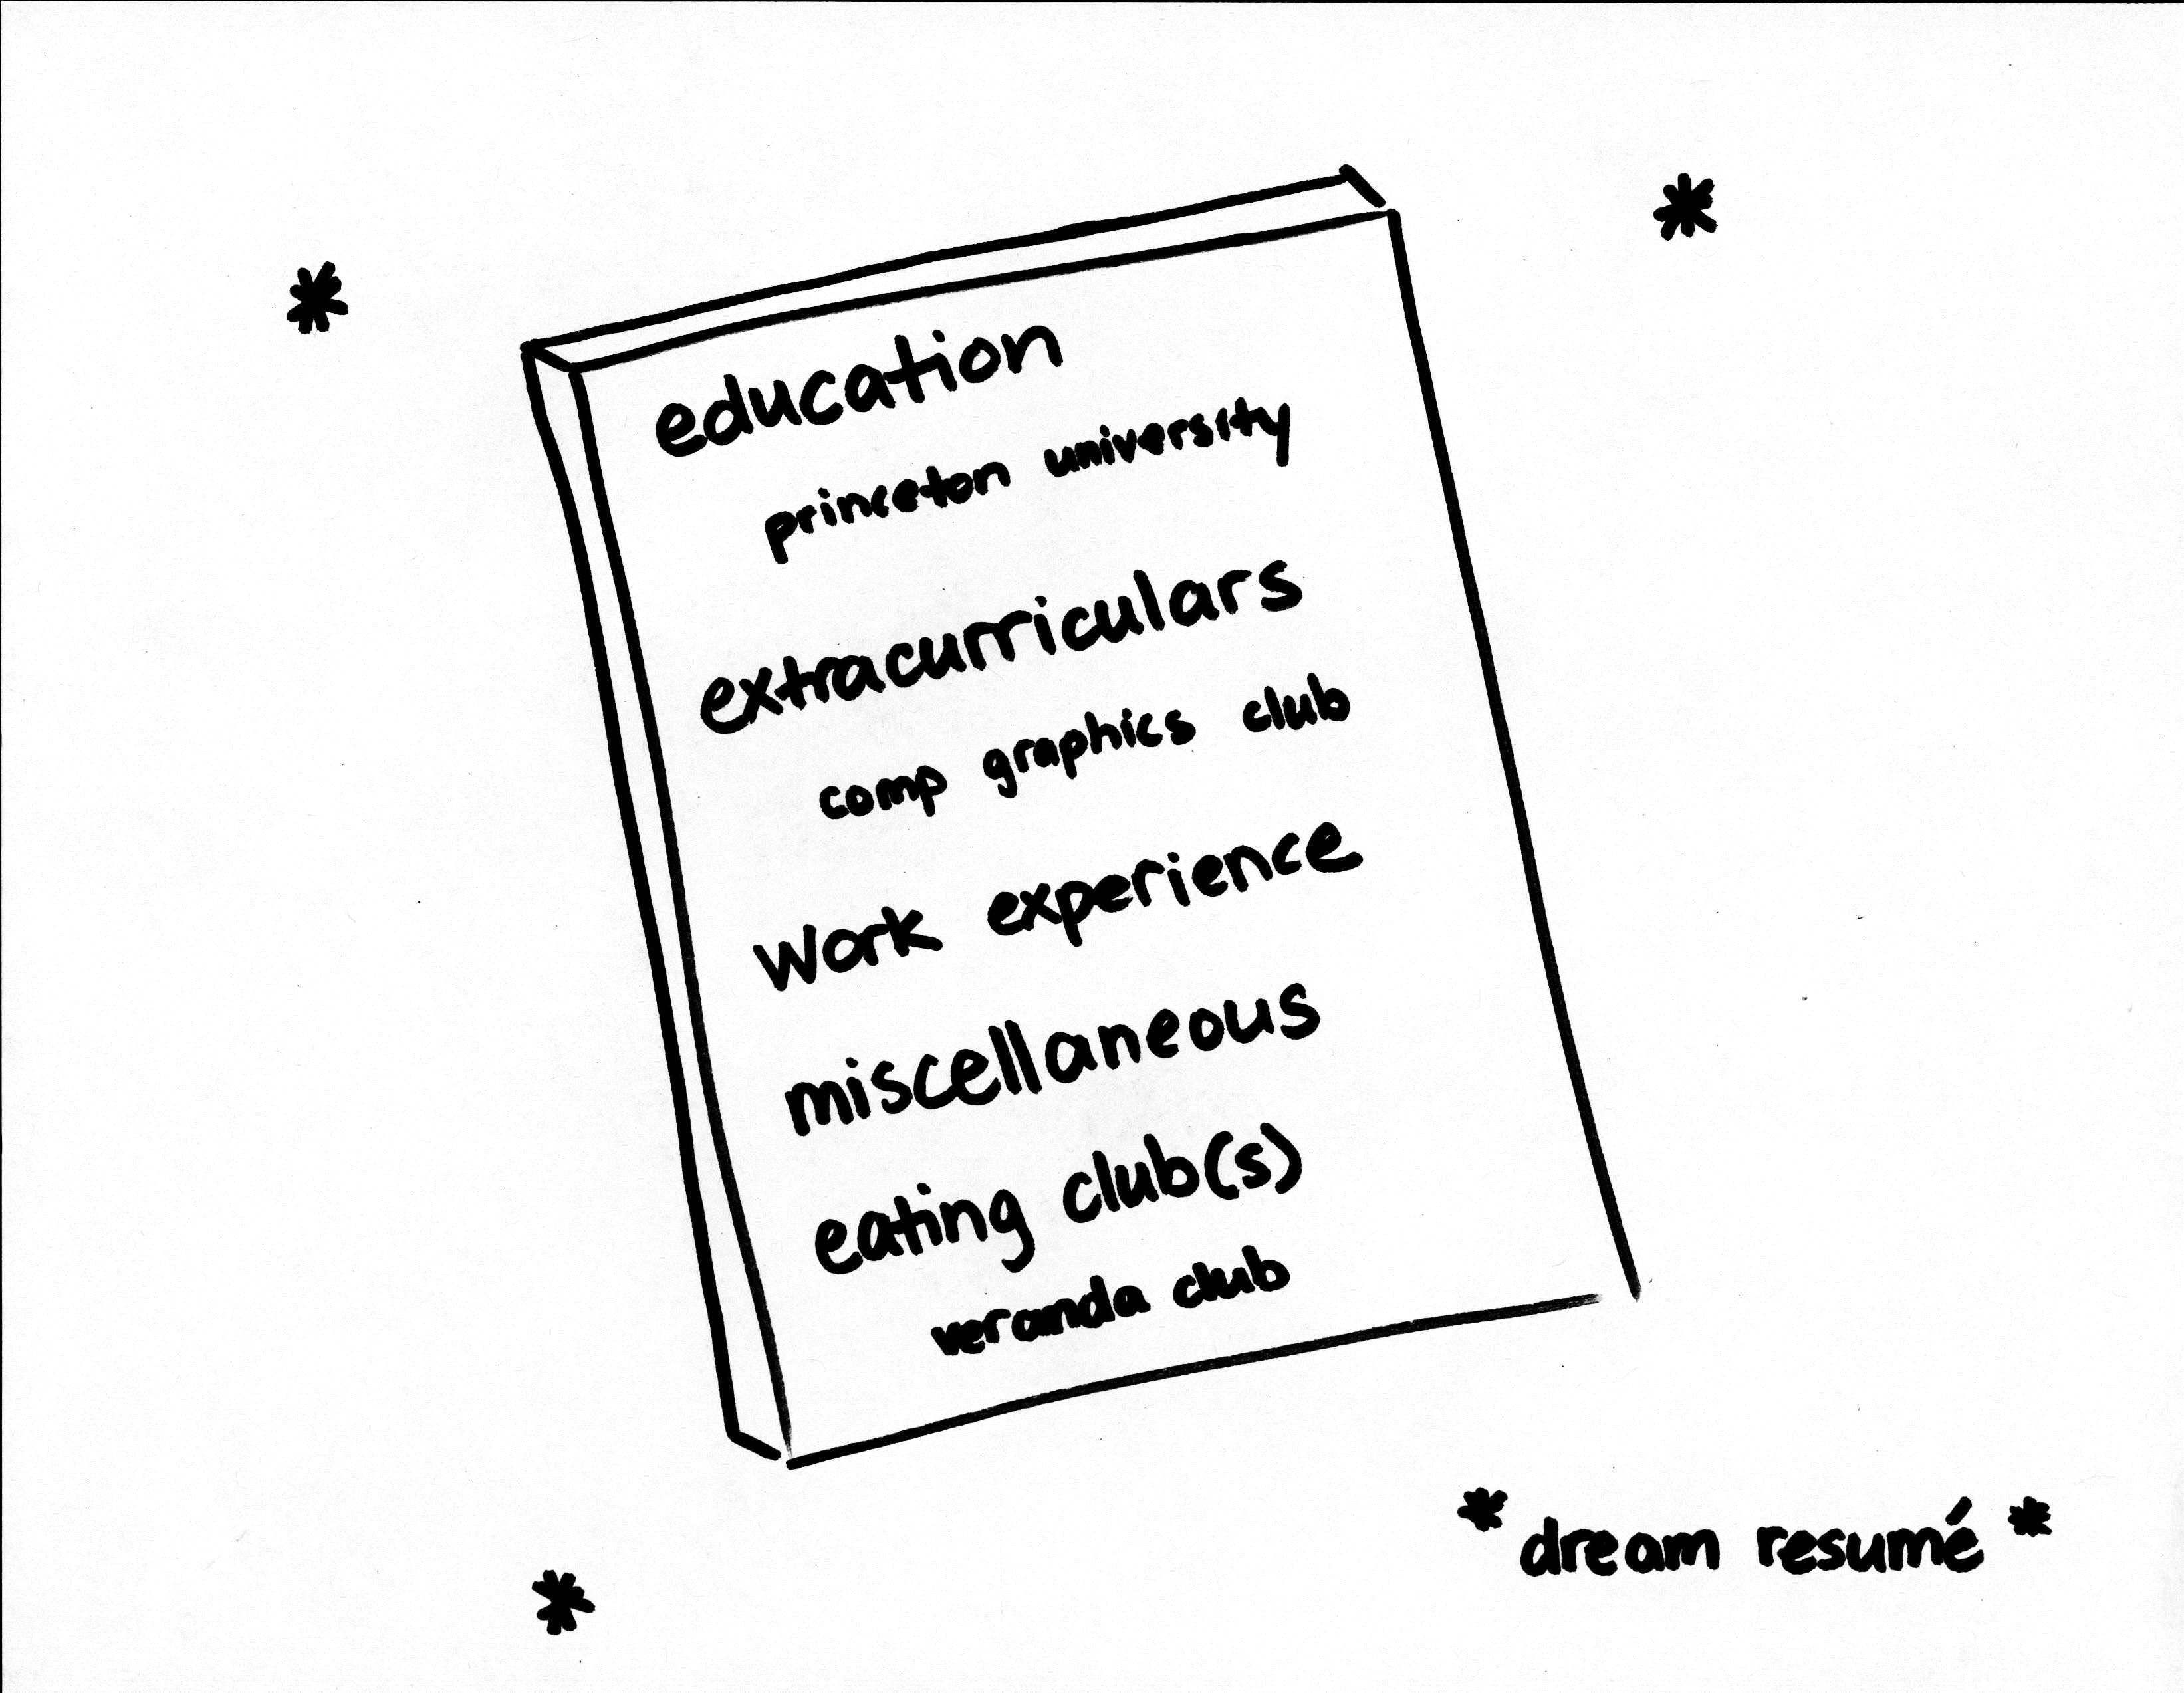 education
princeton university
extracurriculars
comp graphics club
Work experience
miscellaneous
eating club(s)
veranda club
*dream resumé*